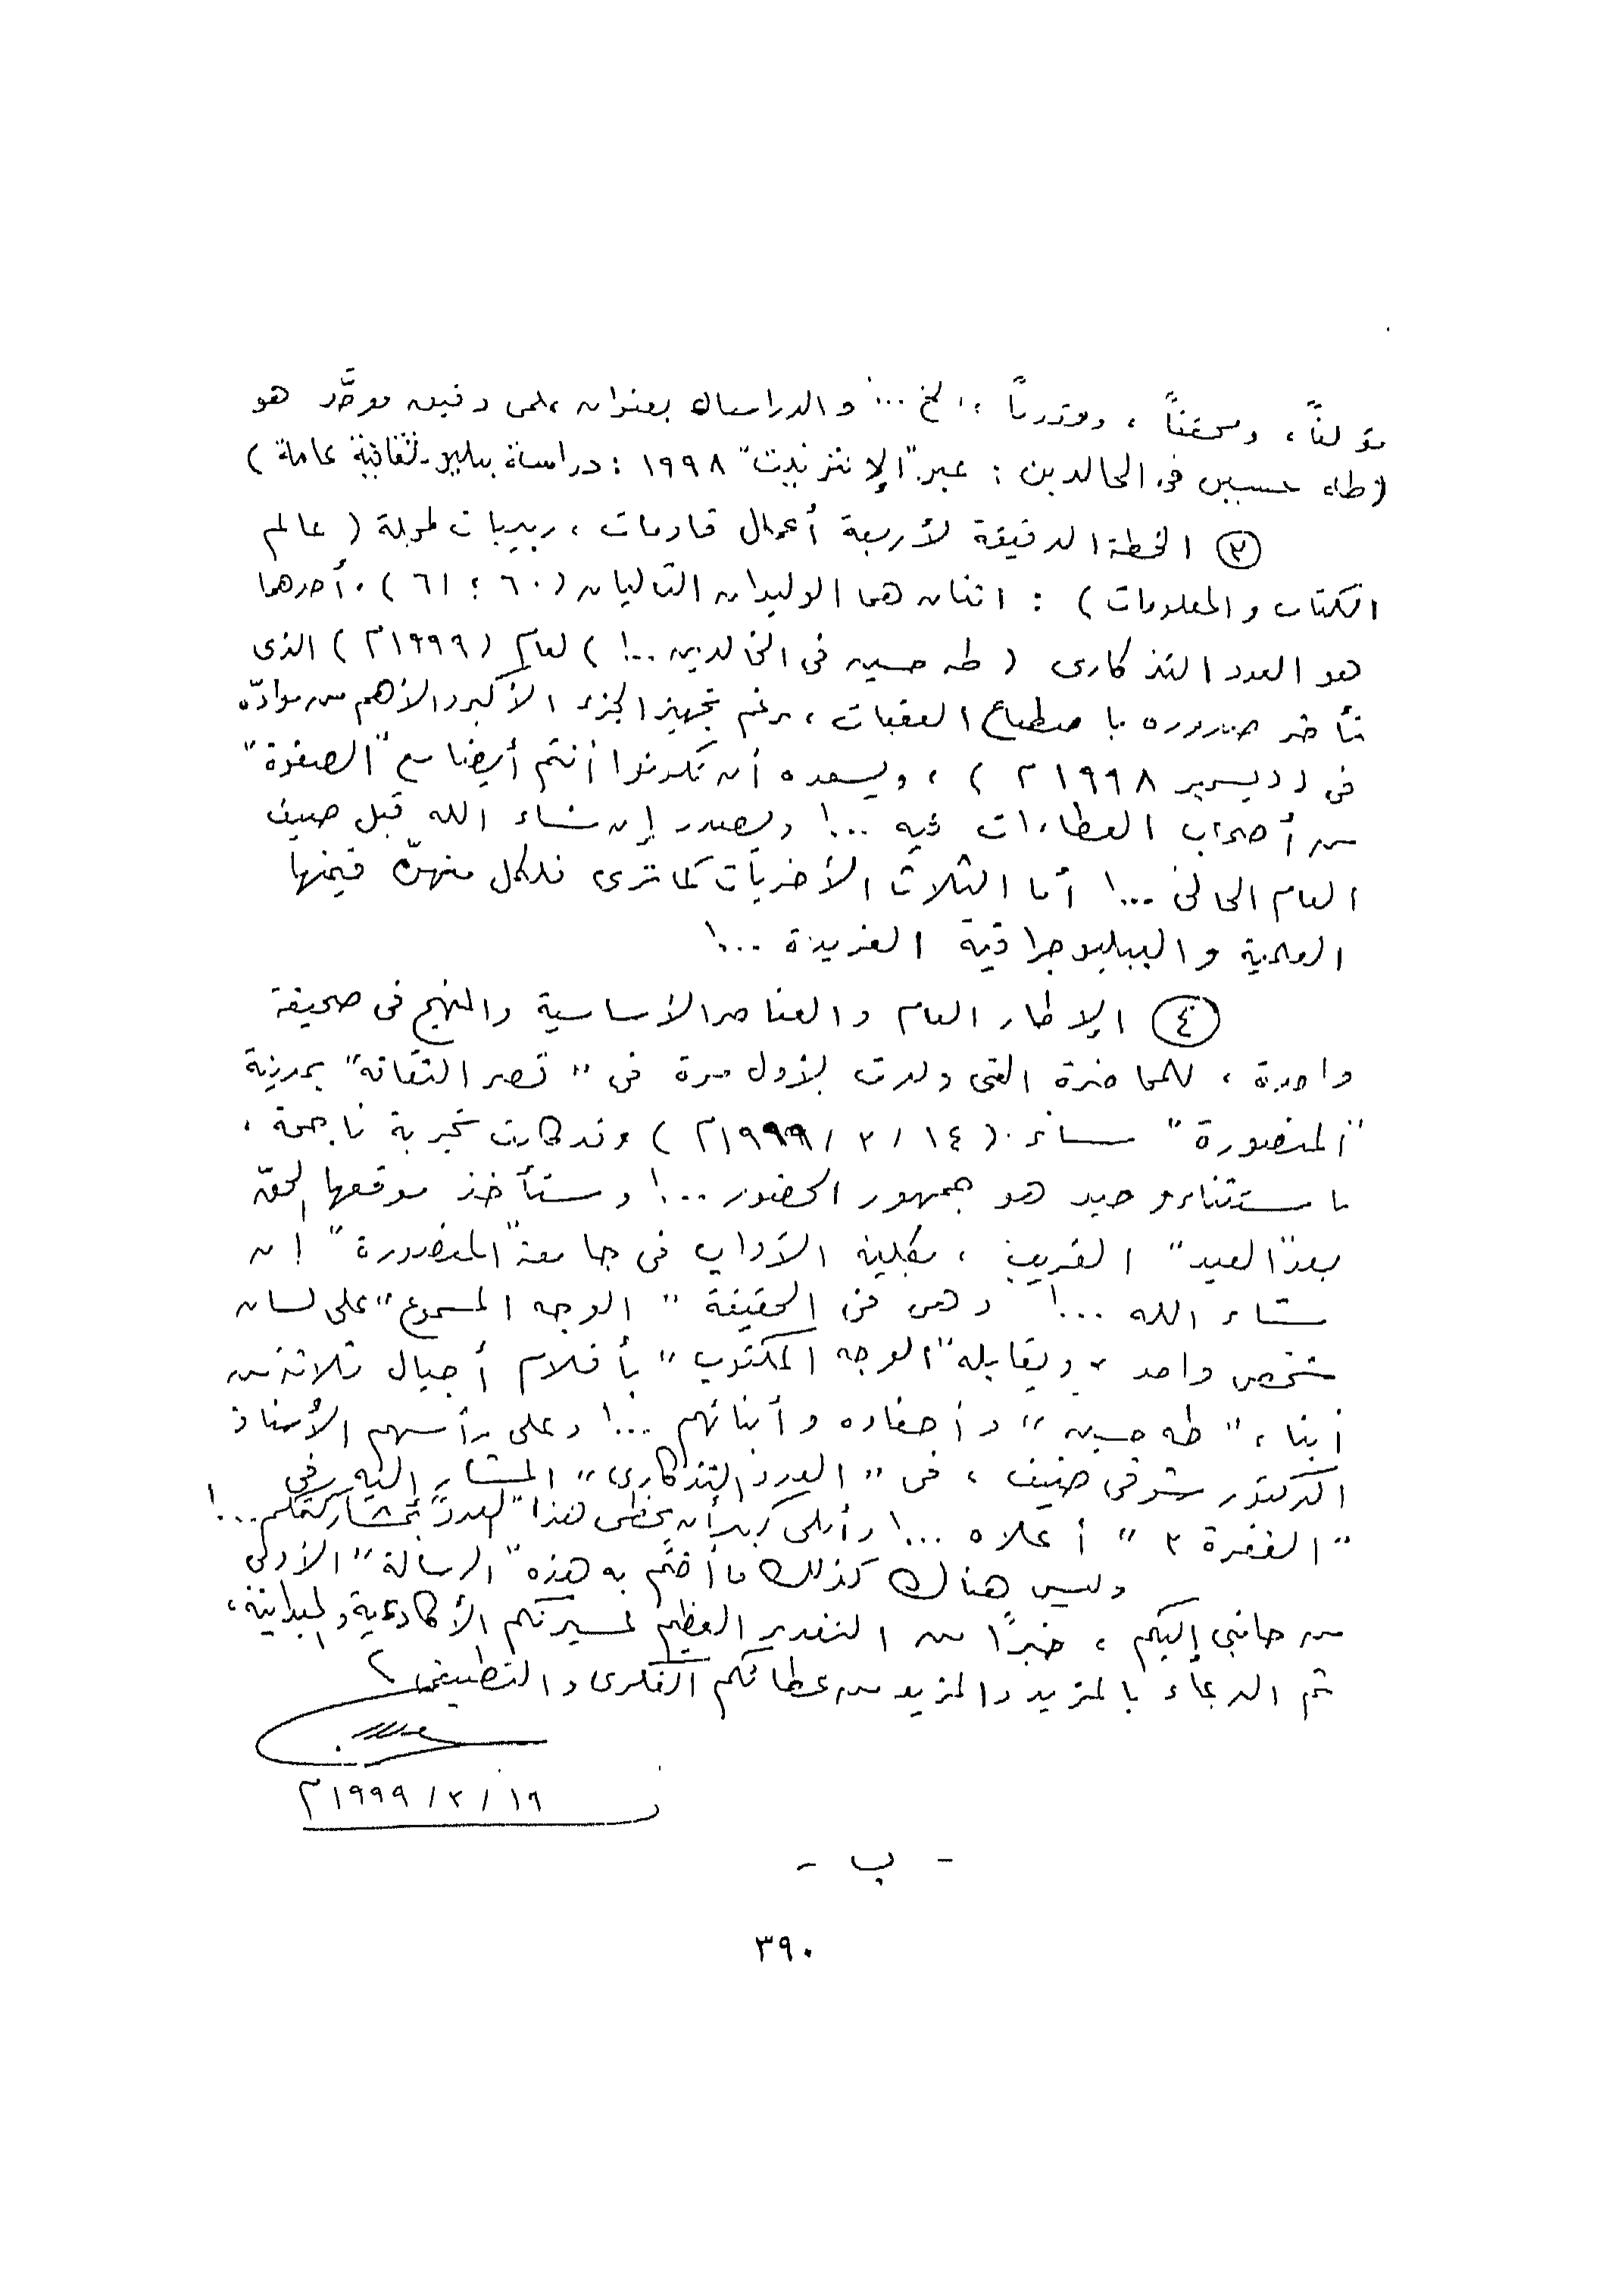 مؤلفاً، ومحققاً، ومترجماً، الخ ... والدراستان بعنوان علمى دقيق موحَّد هو
(طه حسين فى الخالدين : عبر "الإنترنيت" ١٩٩٨ : دراسة ببليو-ثقافية عامة)
(٣) الخطة الدقيقة لأربعة أعمال قادمات، ربيبات لمجلة (عالم
الكتاب والمعلومات) : اثنان هما الوليدان التاليان (٦٠ ؛ ٦١). أحدهما
هو العدد التذكارى (طه حسين فى الخالدين ..!) لعام (١٩٩٩م) الذى
تأخر صدوره باصطناع العقبات، رغم تجهيز الجزء الأكبر والأهم من موادّه
فى (ديسمبر ١٩٩٨م)، ويسعده أن تكونوا أنتم أيضا مع "الصفوة"
من أصحاب العطاءات فيه ...! ويصدر إن شاء الله قبل صيف
العام الحالى ...! أما الثلاث الأخريات كما ترى فلكل منهنّ قيمتها
العلمية والببليوجرافية الفريدة ...!
(٤) الإطار العام والعناصر الأساسية والمنهج فى صحيفة
واحدة، للمحاضرة التى ولدت لأول مرة فى "قصر الثقافة" بمدينة
"المنصورة" مساء (١٤ / ٣ / ١٩٩٩م) وقد كانت تجربة ناجحة،
باستثناء وحيد هو جمهور الحضور ...! وستأخذ موقعها الحقّ
بعد "العيد" القريب، بكلية الآداب فى جامعة "المنصورة" إن
شاء الله ...! وهى فى الحقيقة "الوجه المسموع" على لسان
شخص واحد، ويقابله "الوجه المكتوب" بأقلام أجيال ثلاثة من
أبناء "طه حسين" وأحفاده وأبنائهم ...! وعلى رأسهم الأستاذ
الدكتور شوقى ضيف، فى "العدد التذكارى" المشار إليه فى
"الفقرة ٣" أعلاه ...! وأملى كبير أن يحظى هذا "العدد" بمشاركتكم ...!
وليس هناك كذلك ما أختم به هذه "الرسالة" الأولى
من جانبى إليكم، خيرًا من التقدير العظيم لمسيرتكم الأكاديمية والميدانية،
ثم الدعاء بالمزيد والمزيد من عطائكم الفكرى والتطبيقى
١٦ / ٣ / ١٩٩٩م
- ب -
٣٩٠